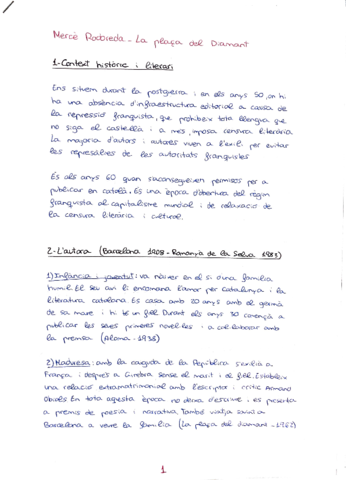 Mercè Rodoreda - La plaça del Diamant
1-Context històric i literari
Ens situem durant la postguerra i en els anys 50, on hi
ha una absència d'infraestructura editorial a causa de
la repressió franquista, que prohibeix tota llengua que
no sigui el castellà i a més, imposa censura literària.
La majoria d'autors i autores viuen a l'exili per evitar
les represàlies de les autoritats franquistes
És als anys 60 quan s'aconsegueixen permisos per a
publicar en català. És una època d'obertura del règim
franquista al capitalisme mundial i de relaxació de
la censura literària i cultural.
2-L'autora (Barcelona 1908 - Romanyà de la Selva 1983)
1) Infància i joventut: va néixer en el si d'una família
humil. El seu avi li encomana l'amor per Catalunya i la
literatura catalana. Es casa amb 20 anys amb el germà
de sa mare i hi té un fill. Durant els anys 30 comença a
publicar les seves primeres novel·les i a col·laborar amb
la premsa (Aloma - 1938)
2) Maduresa: amb la caiguda de la República s'exilia a
França i després a Ginebra sense el marit i el fill. Estableix
una relació extramatrimonial amb l'escriptor i crític Armand
Obiols. En tota aquesta època no deixa d'escriure i es presenta
a premis de poesia i narrativa. També viatja sovint a
Barcelona a veure la família (La plaça del diamant - 1962)
1